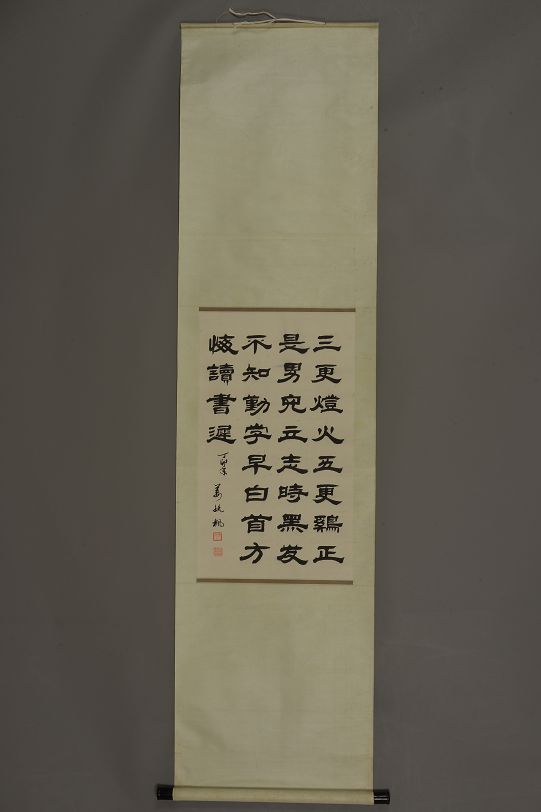 三更燈火五更鷄正
是男兒立志時黑发
不知勤学早白首方
悔讀書遲
丁卯